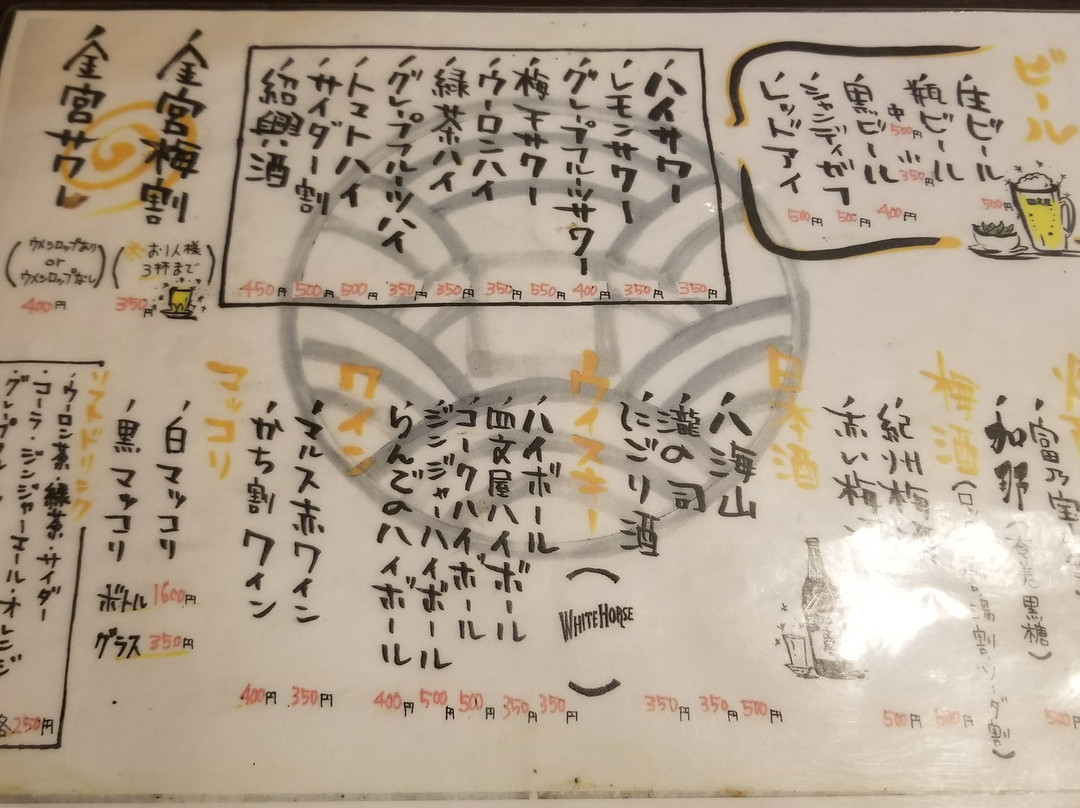 ビール
生ビール 500円
瓶ビール 中500円 小350円
黒ビール 400円
シャンディガフ 500円
レッドアイ 500円
ハイサワー 350円
レモンサワー 350円
グレープフルーツサワー 400円
梅干サワー 550円
ウーロンハイ 350円
緑茶ハイ 350円
グレープフルーツハイ 350円
トマトハイ 500円
サイダー割 500円
紹興酒 450円
金宮梅割
(お1人様
3杯まで)
350円
金宮サワー
(ウメシロップあり
or
ウメシロップなし)
400円
富乃宝
加那
黒糖)
500円
梅酒
ソーダ割)
紀州梅
赤い梅
500円
500円
日本酒
八海山 500円
瀧の司 350円
にごり酒 350円
ウイスキー
(WHITE HORSE)
ハイボール 350円
四文屋ハイボール 350円
コークハイボール 500円
ジンジャーハイボール 500円
らんでのハイボール 400円
ワイン
マルス赤ワイン 350円
かち割ワイン 400円
マッコリ
白マッコリ
黒マッコリ
ボトル 1600円
グラス 350円
ソフトドリンク
ウーロン茶・緑茶・サイダー
コーラ・ジンジャーエール・オレンジ
グレープフル
各250円